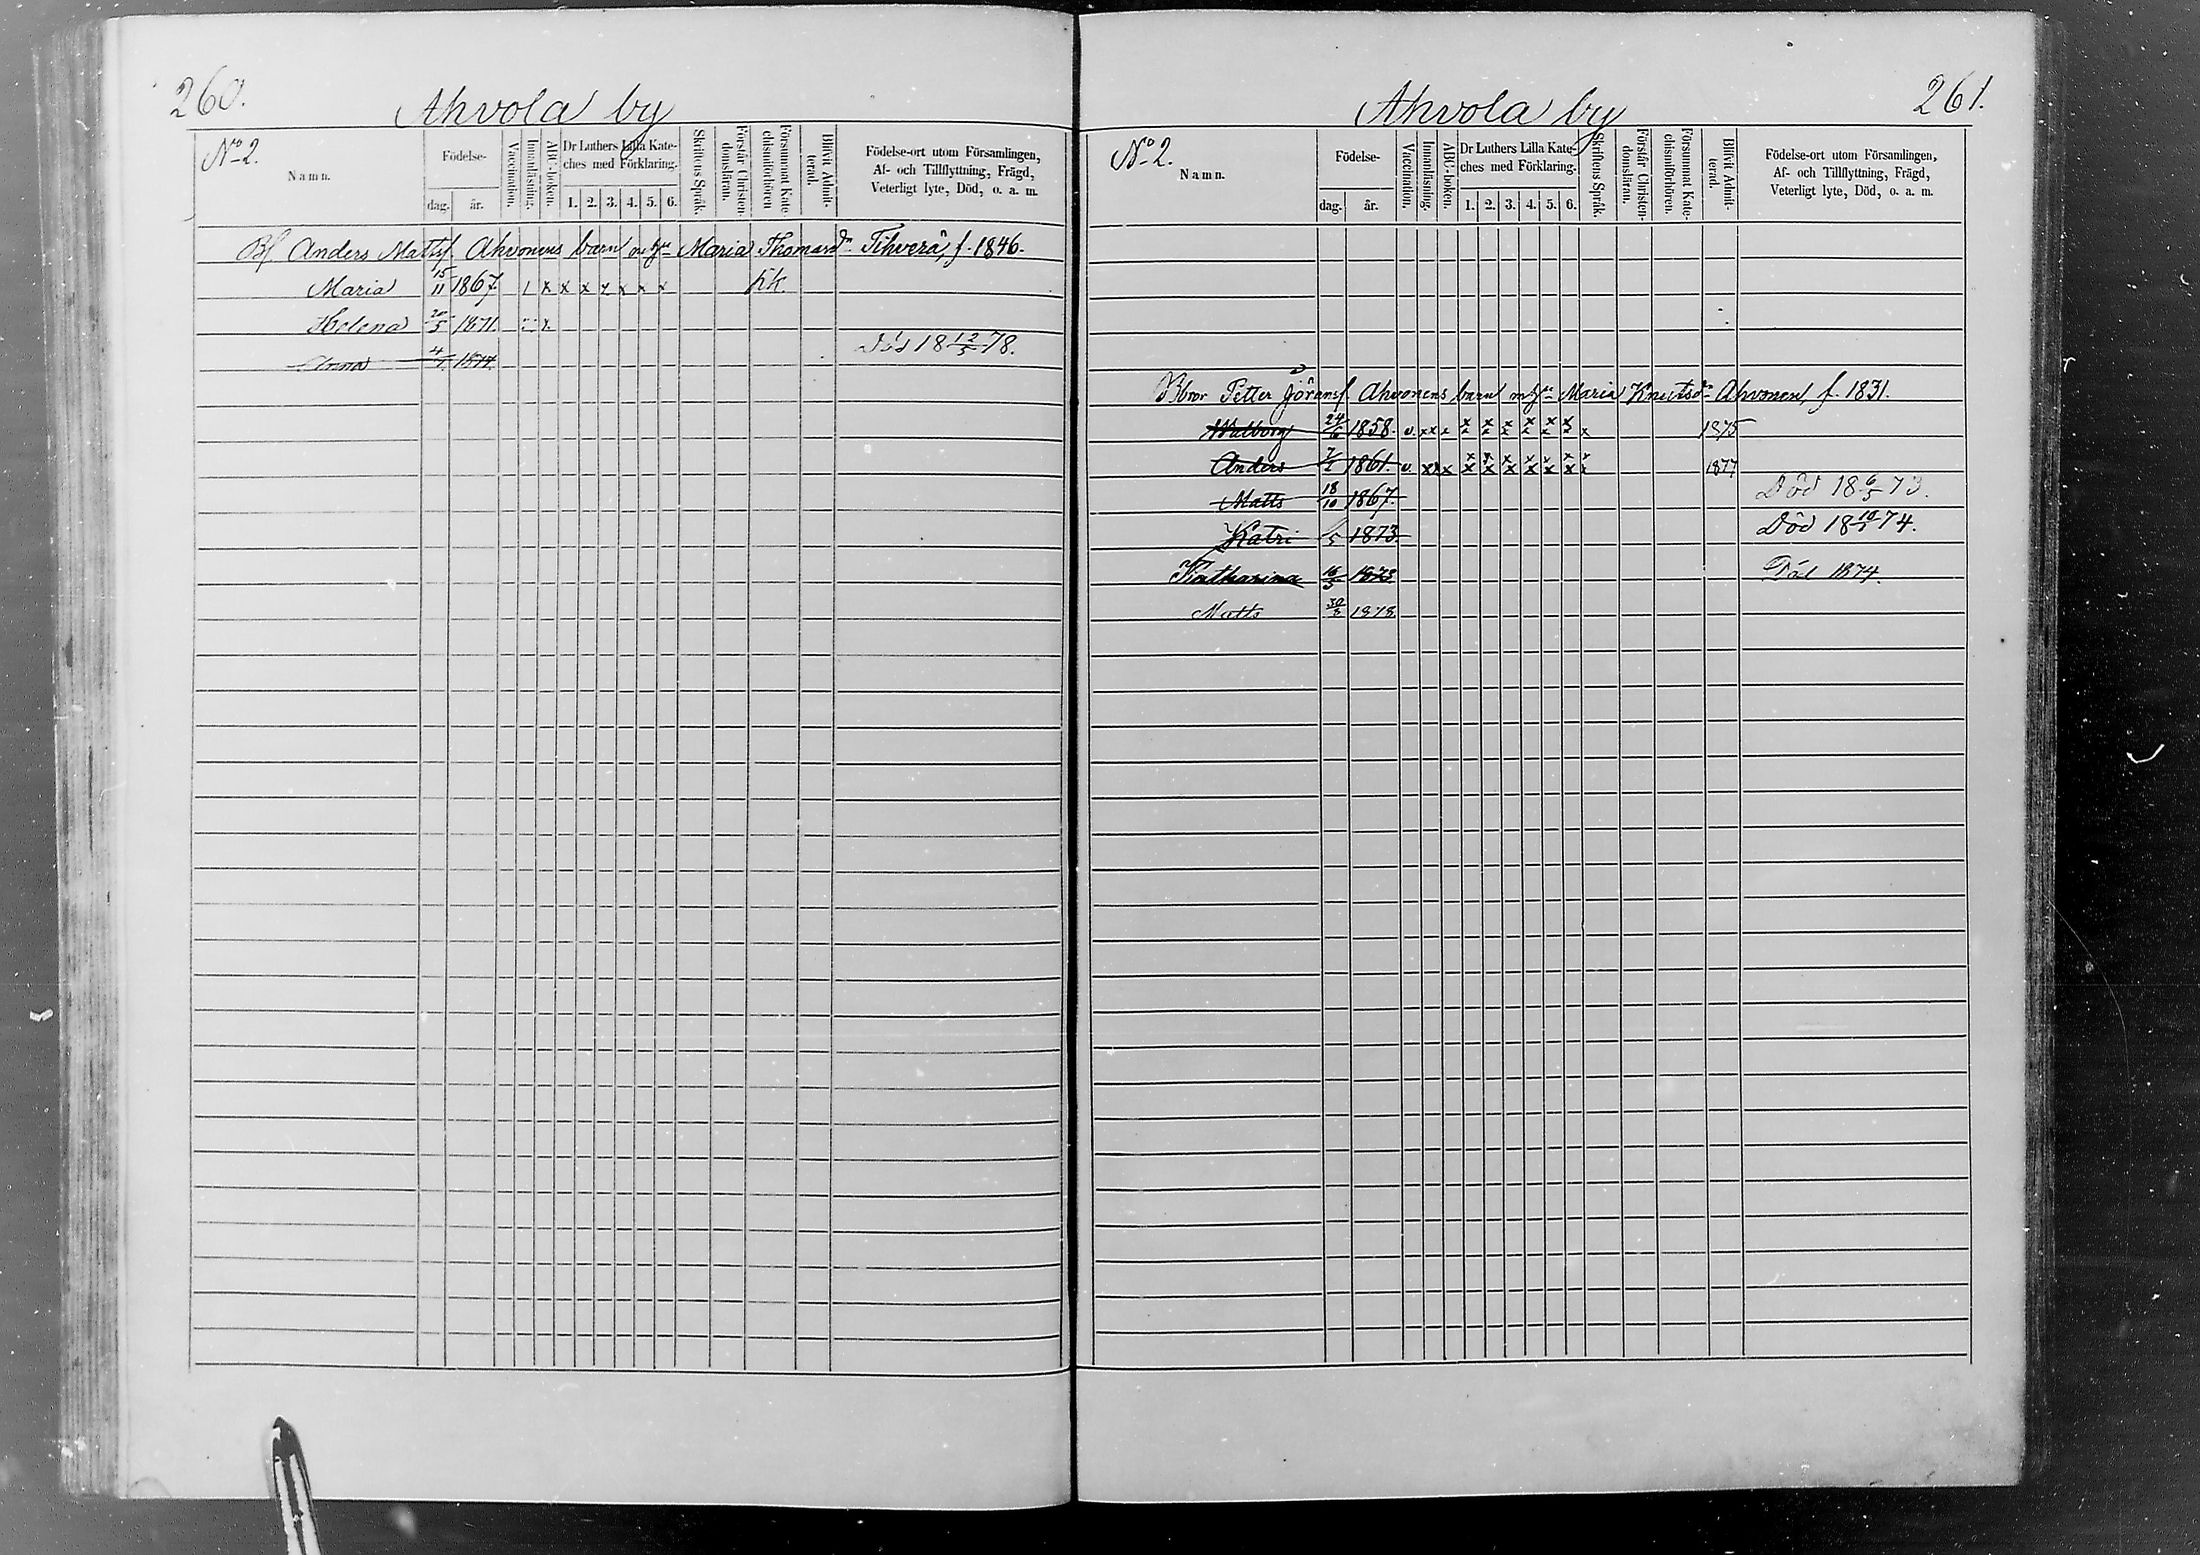 260.
Ahvola by
No 2.
Namn.
Födelse-
dag. år.
Vaccination.
Innanläsning.
ABC-boken.
Dr Luthers Lilla Kate-
ches med Förklaring.
1. 2. 3. 4. 5. 6.
Skriftens Språk.
Förstår Christen-
domsläran.
Försummat Kate
chismiförhören
Blifvit Admit-
terad.
Födelse-ort utom Församlingen,
Af- och Tillflyttning, Frägd,
Veterligt lyte, Död, o. a. m.
Anders Mattsf. Ahvonens barn m. hu Maria Thomasdr Tihverä, f. 1846.
Maria 15/11 1867. x x x x x x x
Helena 20/5 1871.
Anna 1874. Död 18 12/5 78.
261.
Ahvola by
No 2.
Namn.
Födelse-
dag. år.
Vaccination.
Innanläsning.
ABC-boken.
Dr Luthers Lilla Kate-
ches med Förklaring.
1. 2. 3. 4. 5. 6.
Skriftens Språk.
Förstår Christen-
domsläran.
Försummat Kate-
chismiförhören.
Blifvit Admit-
terad.
Födelse-ort utom Församlingen,
Af- och Tillflyttning, Frägd,
Veterligt lyte, Död, o. a. m.
Petter Göransf. Ahvonens barn m. hu Maria Knutsdr Ahvonen, f. 1831.
Walborg 24/6 1858. v. x x x x x x x x x x 1875
Anders 7/2 1861. v. x x x x x x x x x x 1877
Matts 18/10 1867. Död 18 6/5 73.
Katri 1873 Död 18 74.
Katharina 16/5 1873 1874.
Matts 1878